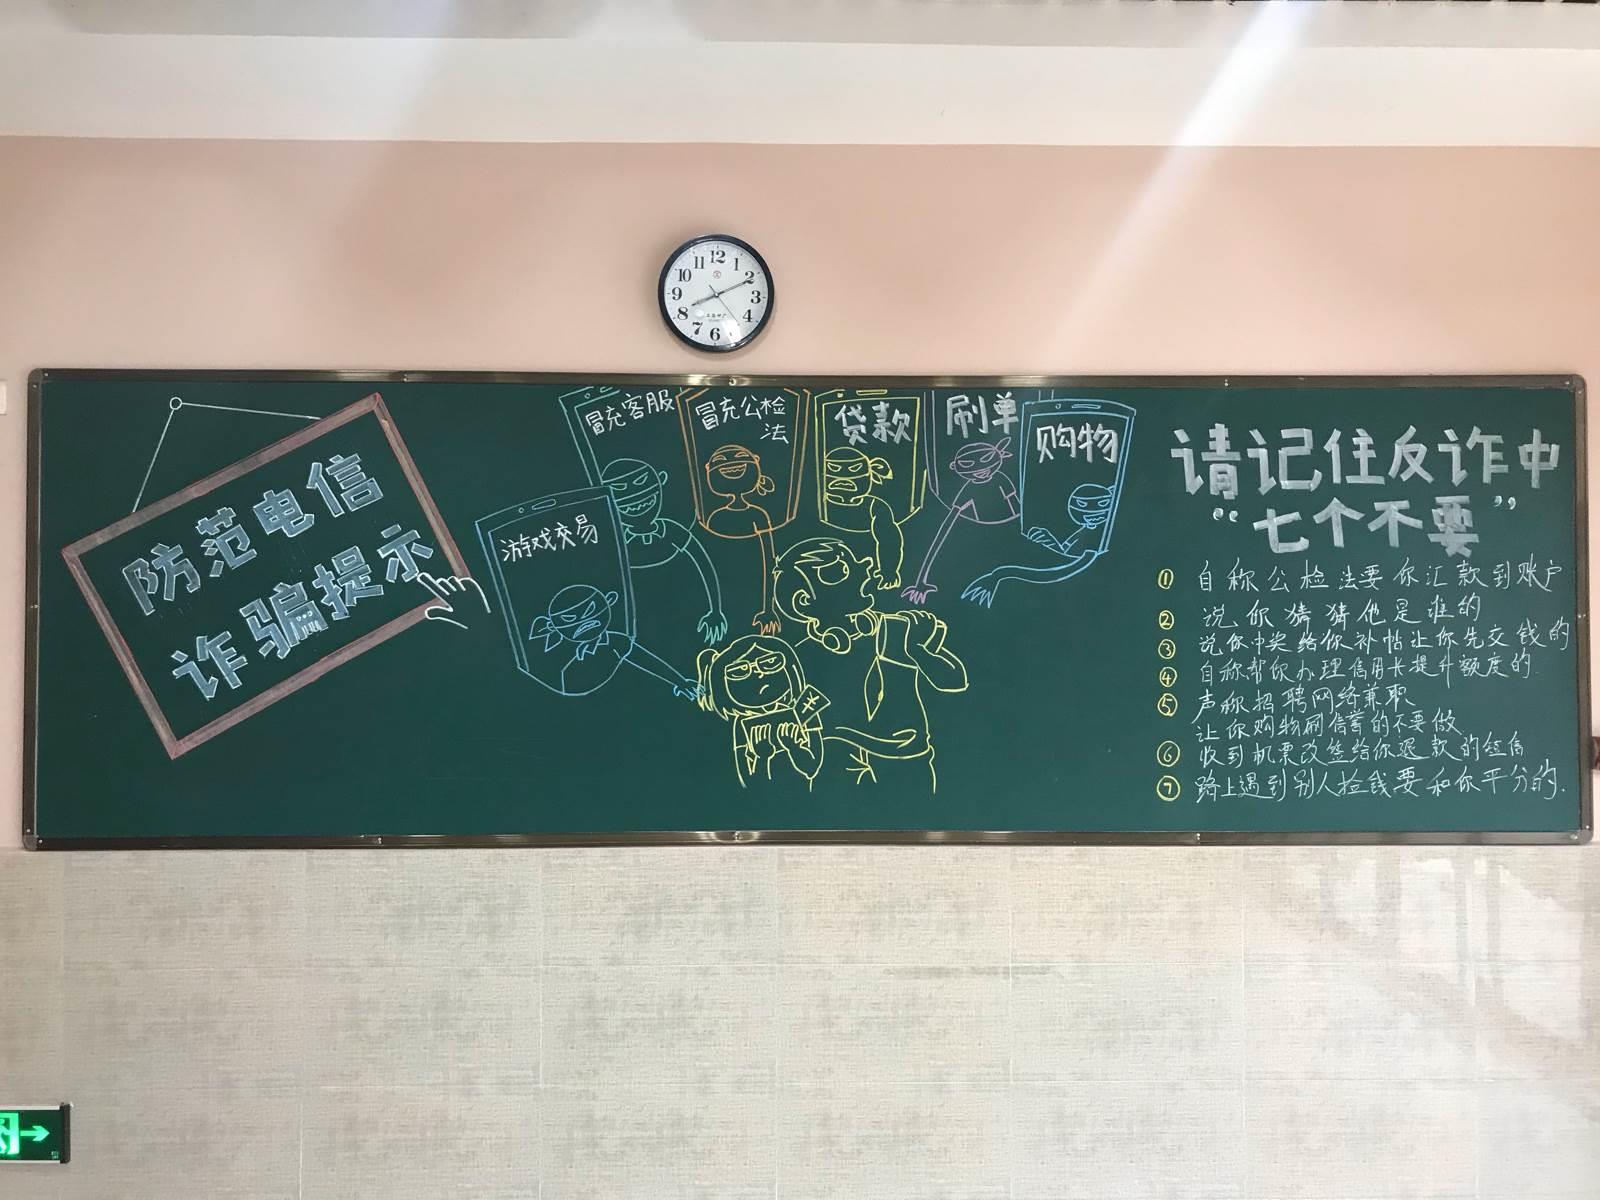 12
11
1
10
2
9
3
8
4
7
5
6
防范电信
诈骗提示
冒充客服
冒充公检
法
贷款
刷单
购物
游戏交易
¥
请记住反诈中
“七个不要”
① 自称公检法要你汇款到账户
② 说你猜猜他是谁的
③ 说你中奖给你补帖让你先交钱的
④ 自称帮你办理信用卡提升额度的.
⑤ 声称招聘网络兼职
让你购物刷信誉的不要做
⑥ 收到机票改签给你退款的短信
⑦ 路上遇到别人捡钱要和你平分的.